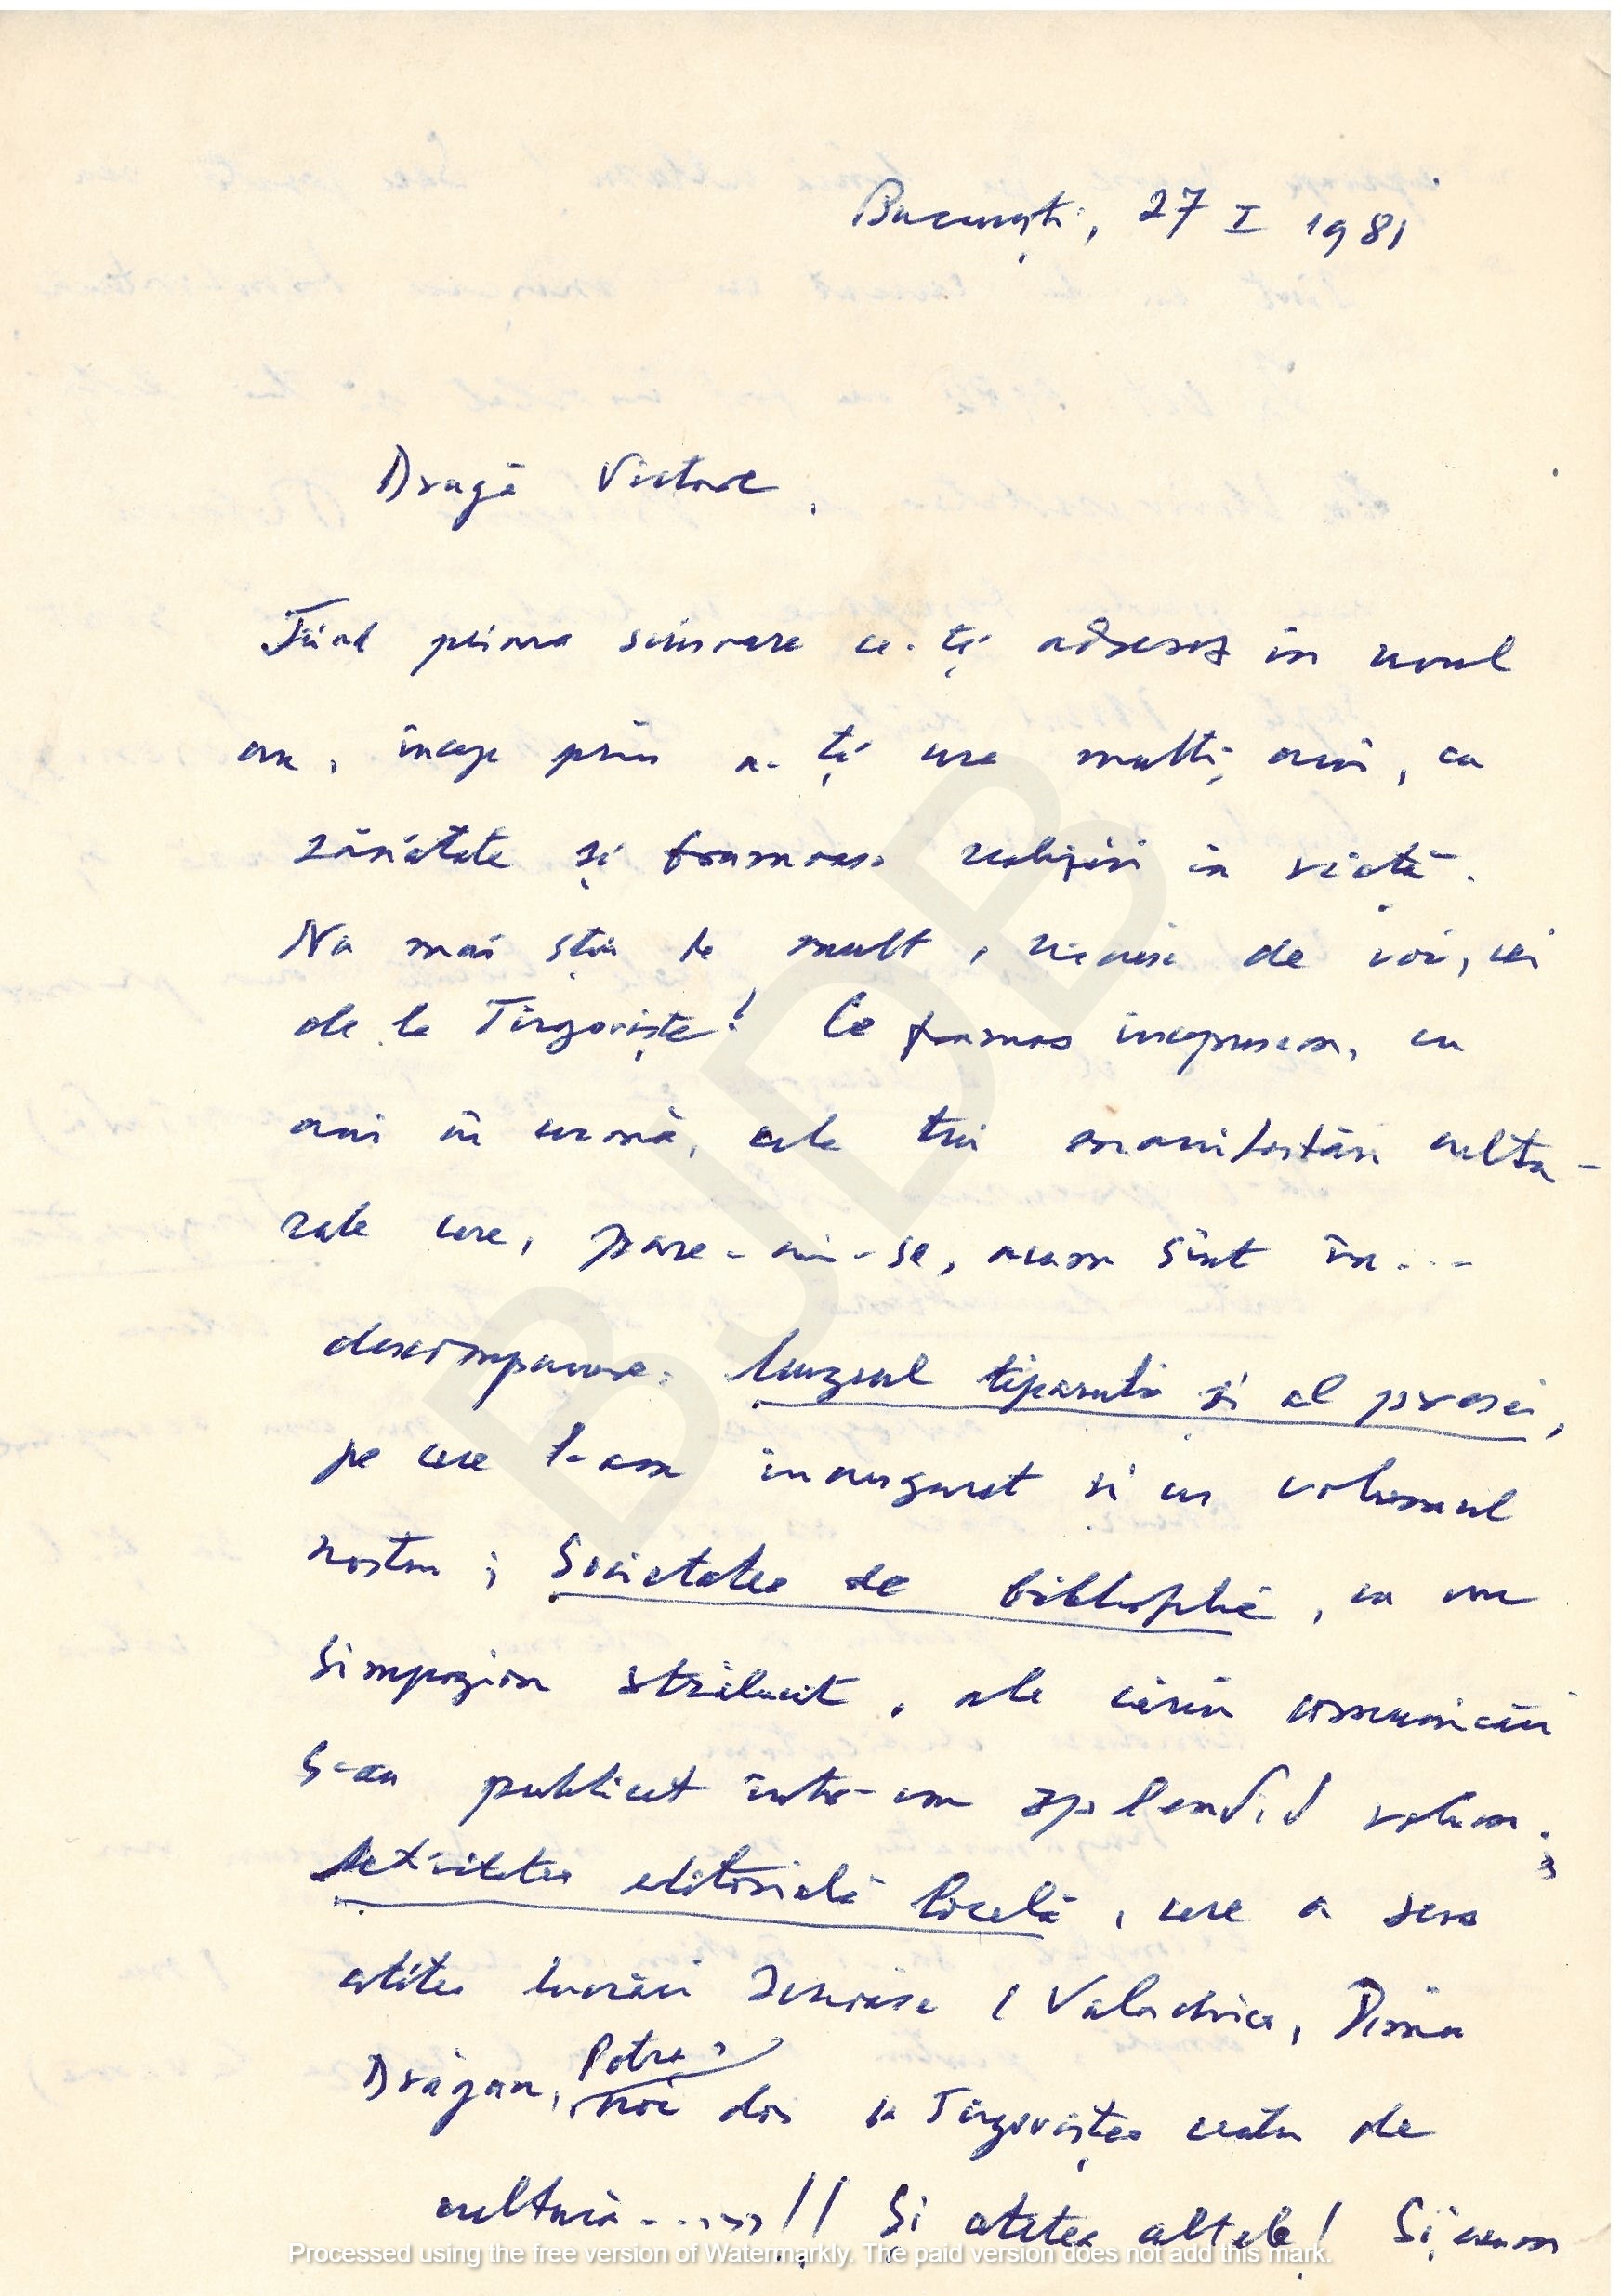 București, 27 I 1981
Dragă Victore,
Fiind prima scrisoare ce-ți adresez în noul
an, încep prin a-ți ura mulți ani, cu
sănătate și frumoase realizări în viață.
Nu mai știu de mult, nimic de voi, cei
de la Tîrgoviște! Ce frumos începusem, cu
ani în urmă, cele trei manifestări cultu-
rale care, pare-mi-se, acum sînt în...
descompunere: Muzeul tiparului și al presei,
pe care l-am inaugurat și cu volumul
nostru; Societatea de bibliofilie, cu un
simpozion strălucit, ale cărui comunicări
s-au publicat într-un splendid volum;
Activitatea editorială locală, care a scos
atîtea lucrări serioase (Valachica, Dima
Drăgan, Potra, noi doi cu Tîrgoviștea centru de
cultură.......!! Și atîtea altele! Și, acum
BJDB
Processed using the free version of Watermarkly. The paid version does not add this mark.